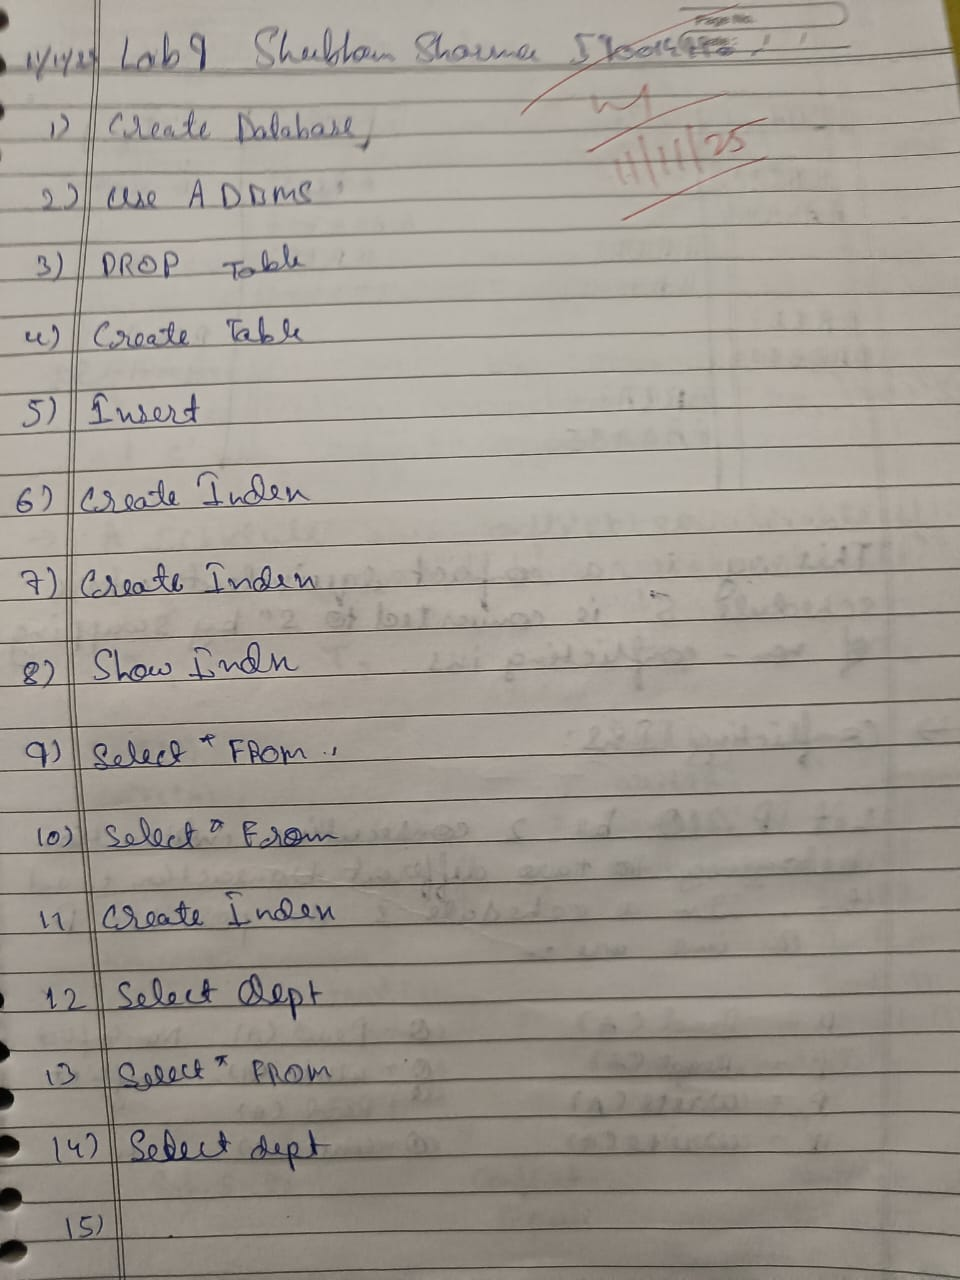 Page No.
11/11/25 Lab 9 Shubham Sharma
11/11/25
1) Create Database,
2) Use ADBMS
3) DROP Table
4) Create Table
5) Insert
6) Create Inden
7) Create Inden
8) Show Indn
9) Select * FROM
10) Select * From
11 Create Inden
12 Select dept
13 Select * FROM
14) Select dept
15)